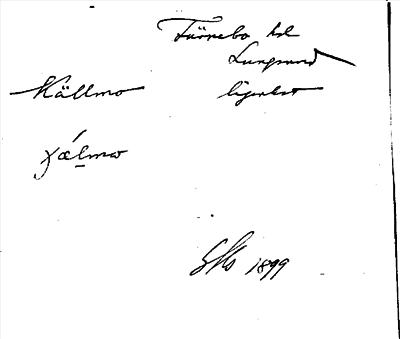 Färnebo hd
Lungsund
Källmo lägenhet
χœ́lmω
SKs 1899